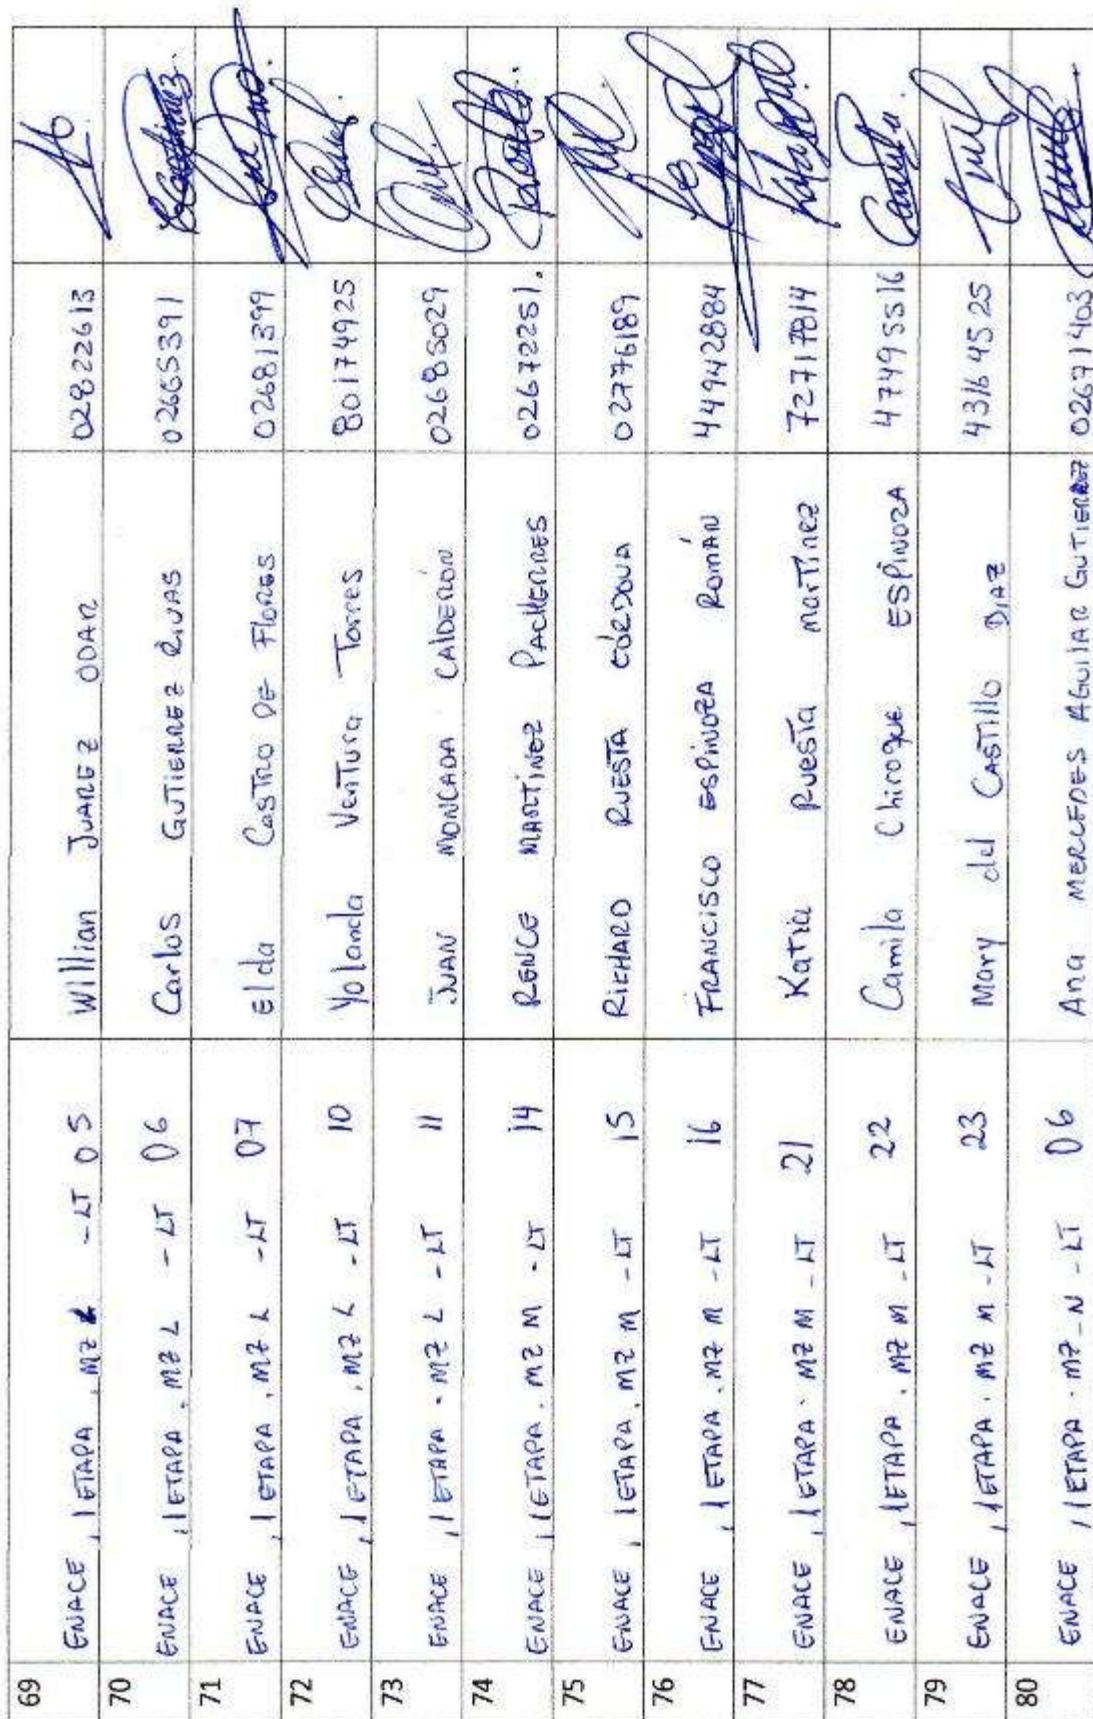 69 ENACE, I ETAPA. MZ L -LT 05 Willian JUAREZ ODAR 02822613
70 ENACE, I ETAPA. MZ L -LT 06 Carlos GUTIERREZ RIVAS 02665391
71 ENACE, I ETAPA. MZ L -LT 07 Elda CASTRO DE FLORES 02681399
72 ENACE, I ETAPA. MZ L -LT 10 Yolanda Ventura Torres 80174925
73 ENACE, I ETAPA. MZ L -LT 11 JUAN MONCADA CALDERÓN 02685029
74 ENACE, I ETAPA. MZ M -LT 14 RENCE MARTINEZ PACHERRES 02672251.
75 ENACE, I ETAPA. MZ M -LT 15 RICHARD RUESTA CÓRDOVA 02776189
76 ENACE, I ETAPA. MZ M -LT 16 FRANCISCO ESPINOZA ROMÁN 44942884
77 ENACE, I ETAPA. MZ M -LT 21 Katia Ruesta martinez 72717814
78 ENACE, I ETAPA. MZ M -LT 22 Camila Chiroque ESPINOZA 47495516
79 ENACE, I ETAPA. MZ M -LT 23 Mary del CASTILLO DIAZ 43164525
80 ENACE, I ETAPA. MZ-N -LT 06 Ana MERCEDES AGUILAR GUTIERREZ 02671403